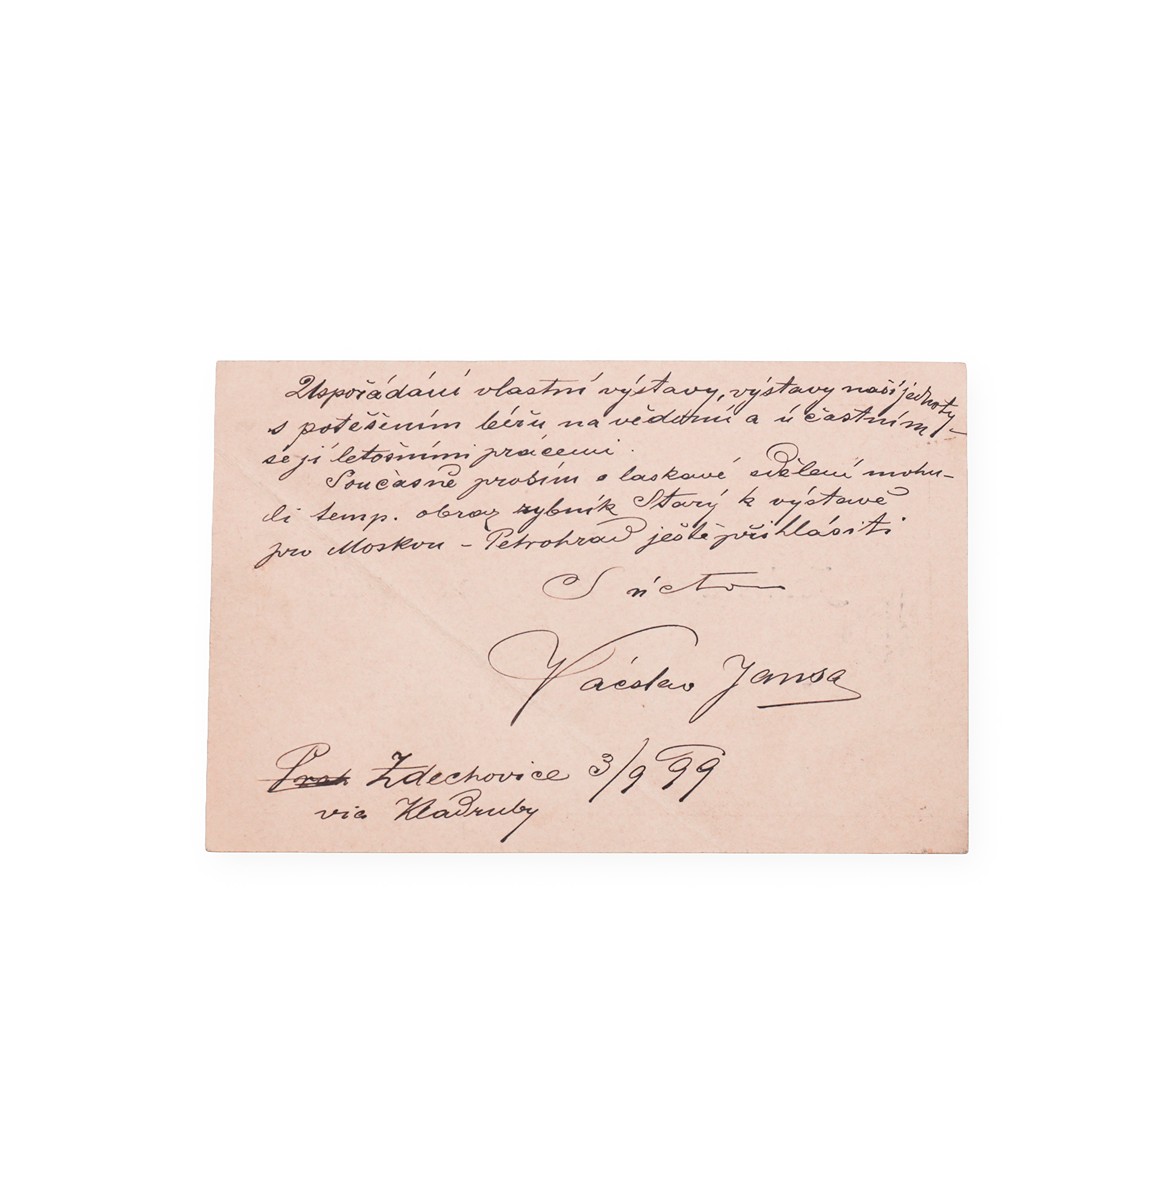 Uspořádání vlastní výstavy, výstavy naší jednoty
s potěšením béřu na vědomí a účastním
se jí letošními pracemi.
Současně prosím o laskavé sdělení mohu-
li temp. obraz rybník Starý k výstavě
pro Moskvu – Petrohrad ještě přihlásiti
S úctou
Václav Jansa
Zdechovice 3/9 99
via Kladruby